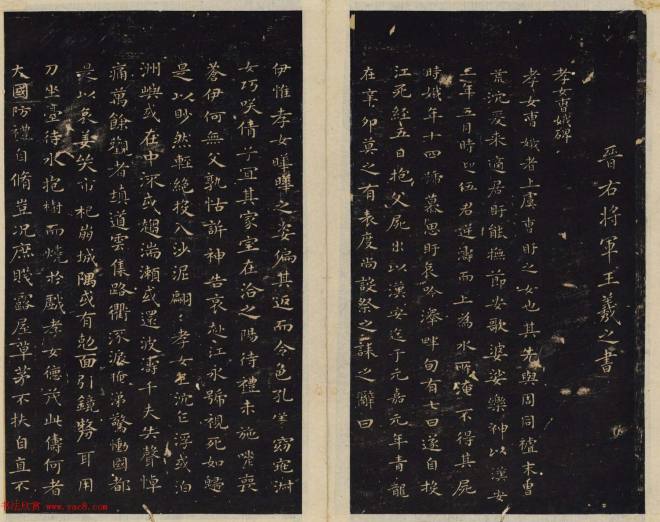 晉右將軍王羲之書
孝女曹娥碑
孝女曹娥者上虞曹盱之女也其先與周同祖末胄
荒沉爰來適居盱能撫節安歌婆娑樂神以漢安
二年五月時迎伍君逆濤而上為水所淹不得其屍
時娥年十四號慕思盱哀吟澤畔旬有七日遂自投
江死經五日抱父屍出以漢安迄于元嘉元年青龍
在辛卯莫之有表度尚設祭之誄之辭曰
伊惟孝女曄曄之姿偏其返而令色孔儀窈窕淑
女巧笑倩兮宜其家室在洽之陽待禮未施嗟喪
蒼伊何無父孰怙訴神告哀赴江永號視死如歸
是以眇然輕絕投入沙泥翩翩孝女乍沉乍浮或泊
洲嶼或在中深或趨湍瀨或還波濤千夫失聲悼
痛萬餘觀者填道雲集路衢流淚掩涕驚慟國都
是以哀姜哭市杞崩城隅或有剋面引鏡剺耳用
刀坐臺待水抱樹而燒於戲孝女德茂此儔何者
大國防禮自脩豈況庶賤露屋草茅不扶自直不
书法欣赏 www.yac8.com